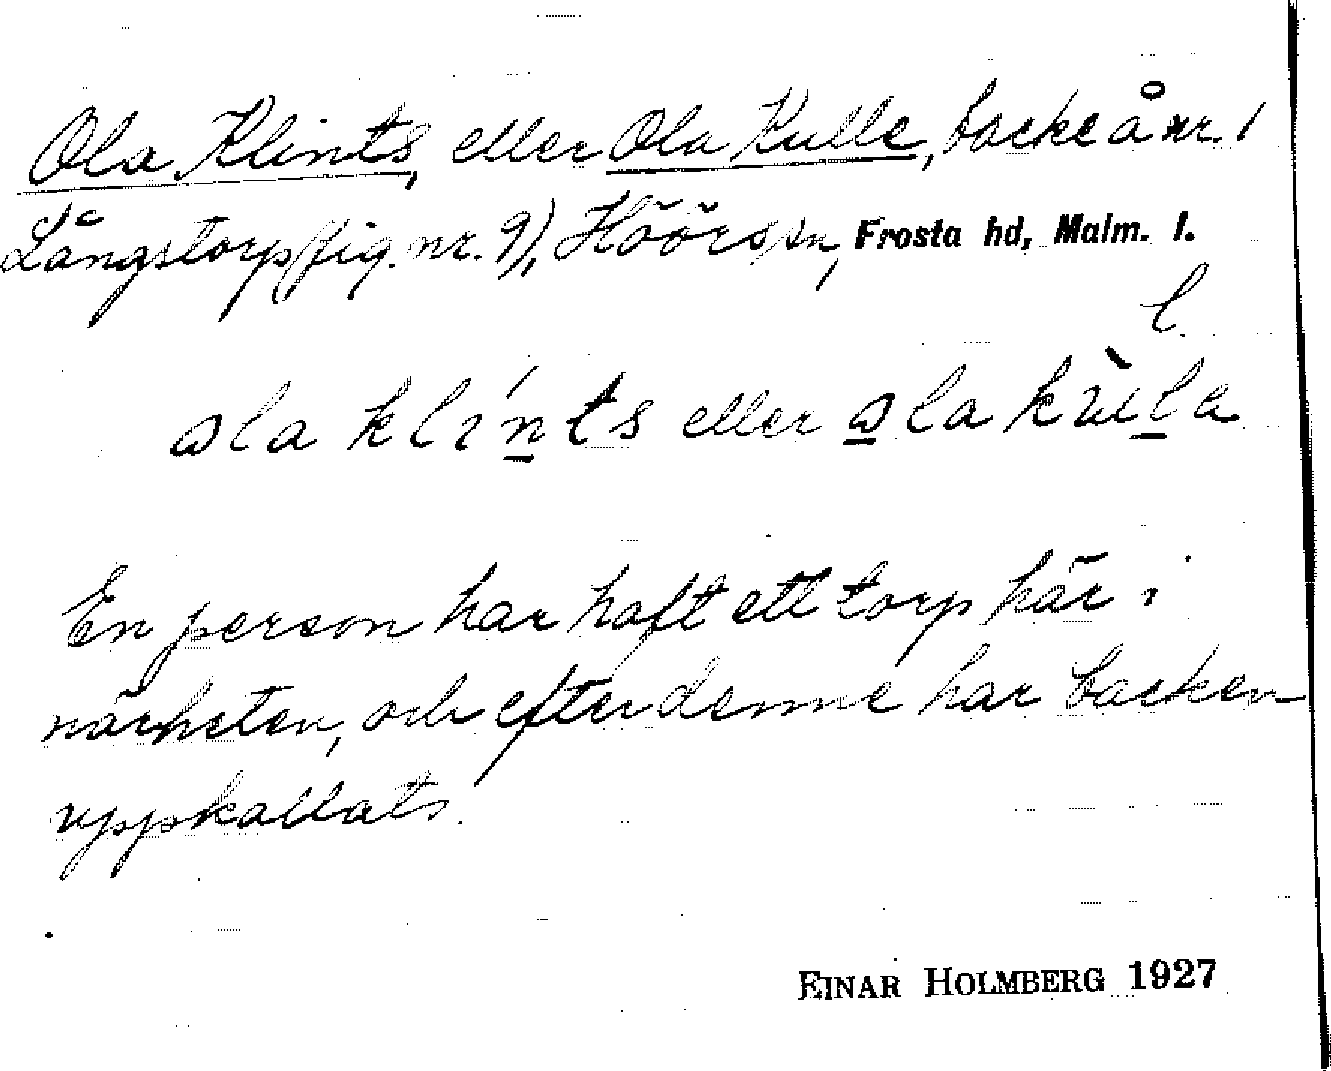 Ola Klints, eller Ola Kulle, backe å nr. 1
Långstorp (fig. nr. 9), Höörs sn, Frosta hd, Malm. l.
l.
ola klints eller ola kula
En person har haft ett torp här i
närheten, och efter denne har backen
uppkallats.
EINAR HOLMBERG 1927